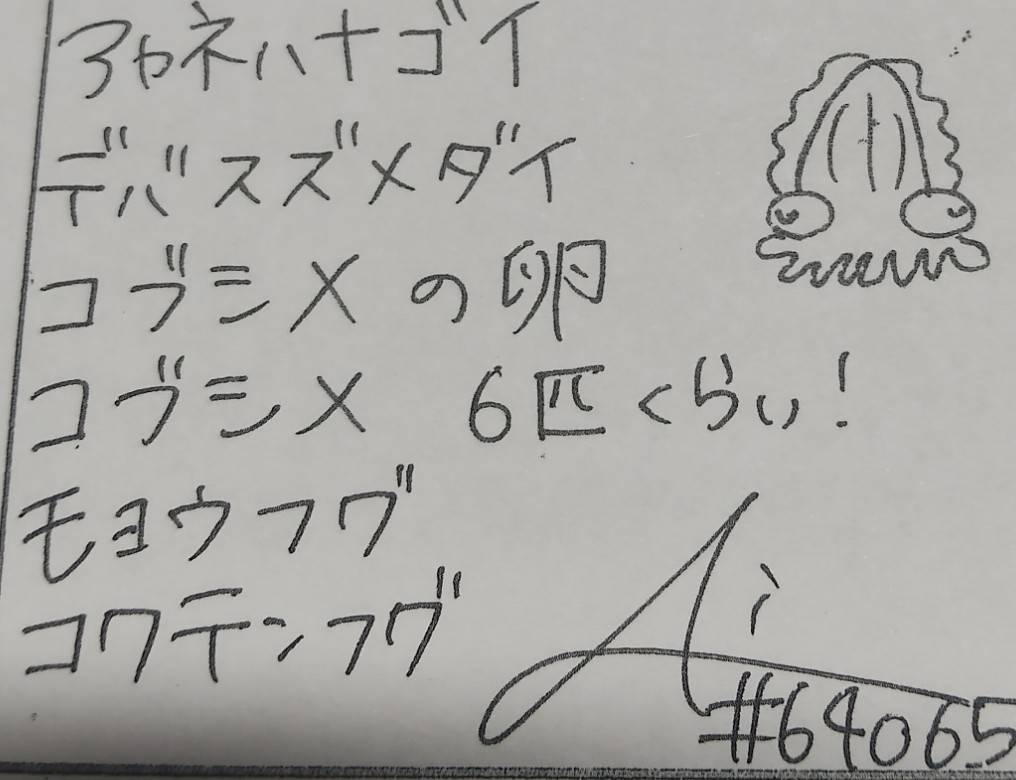 アカネハナゴイ
デバスズメダイ
コブシメの卵
コブシメ 6匹くらい!
モヨウフグ
コクテンフグ
Ai
#64065